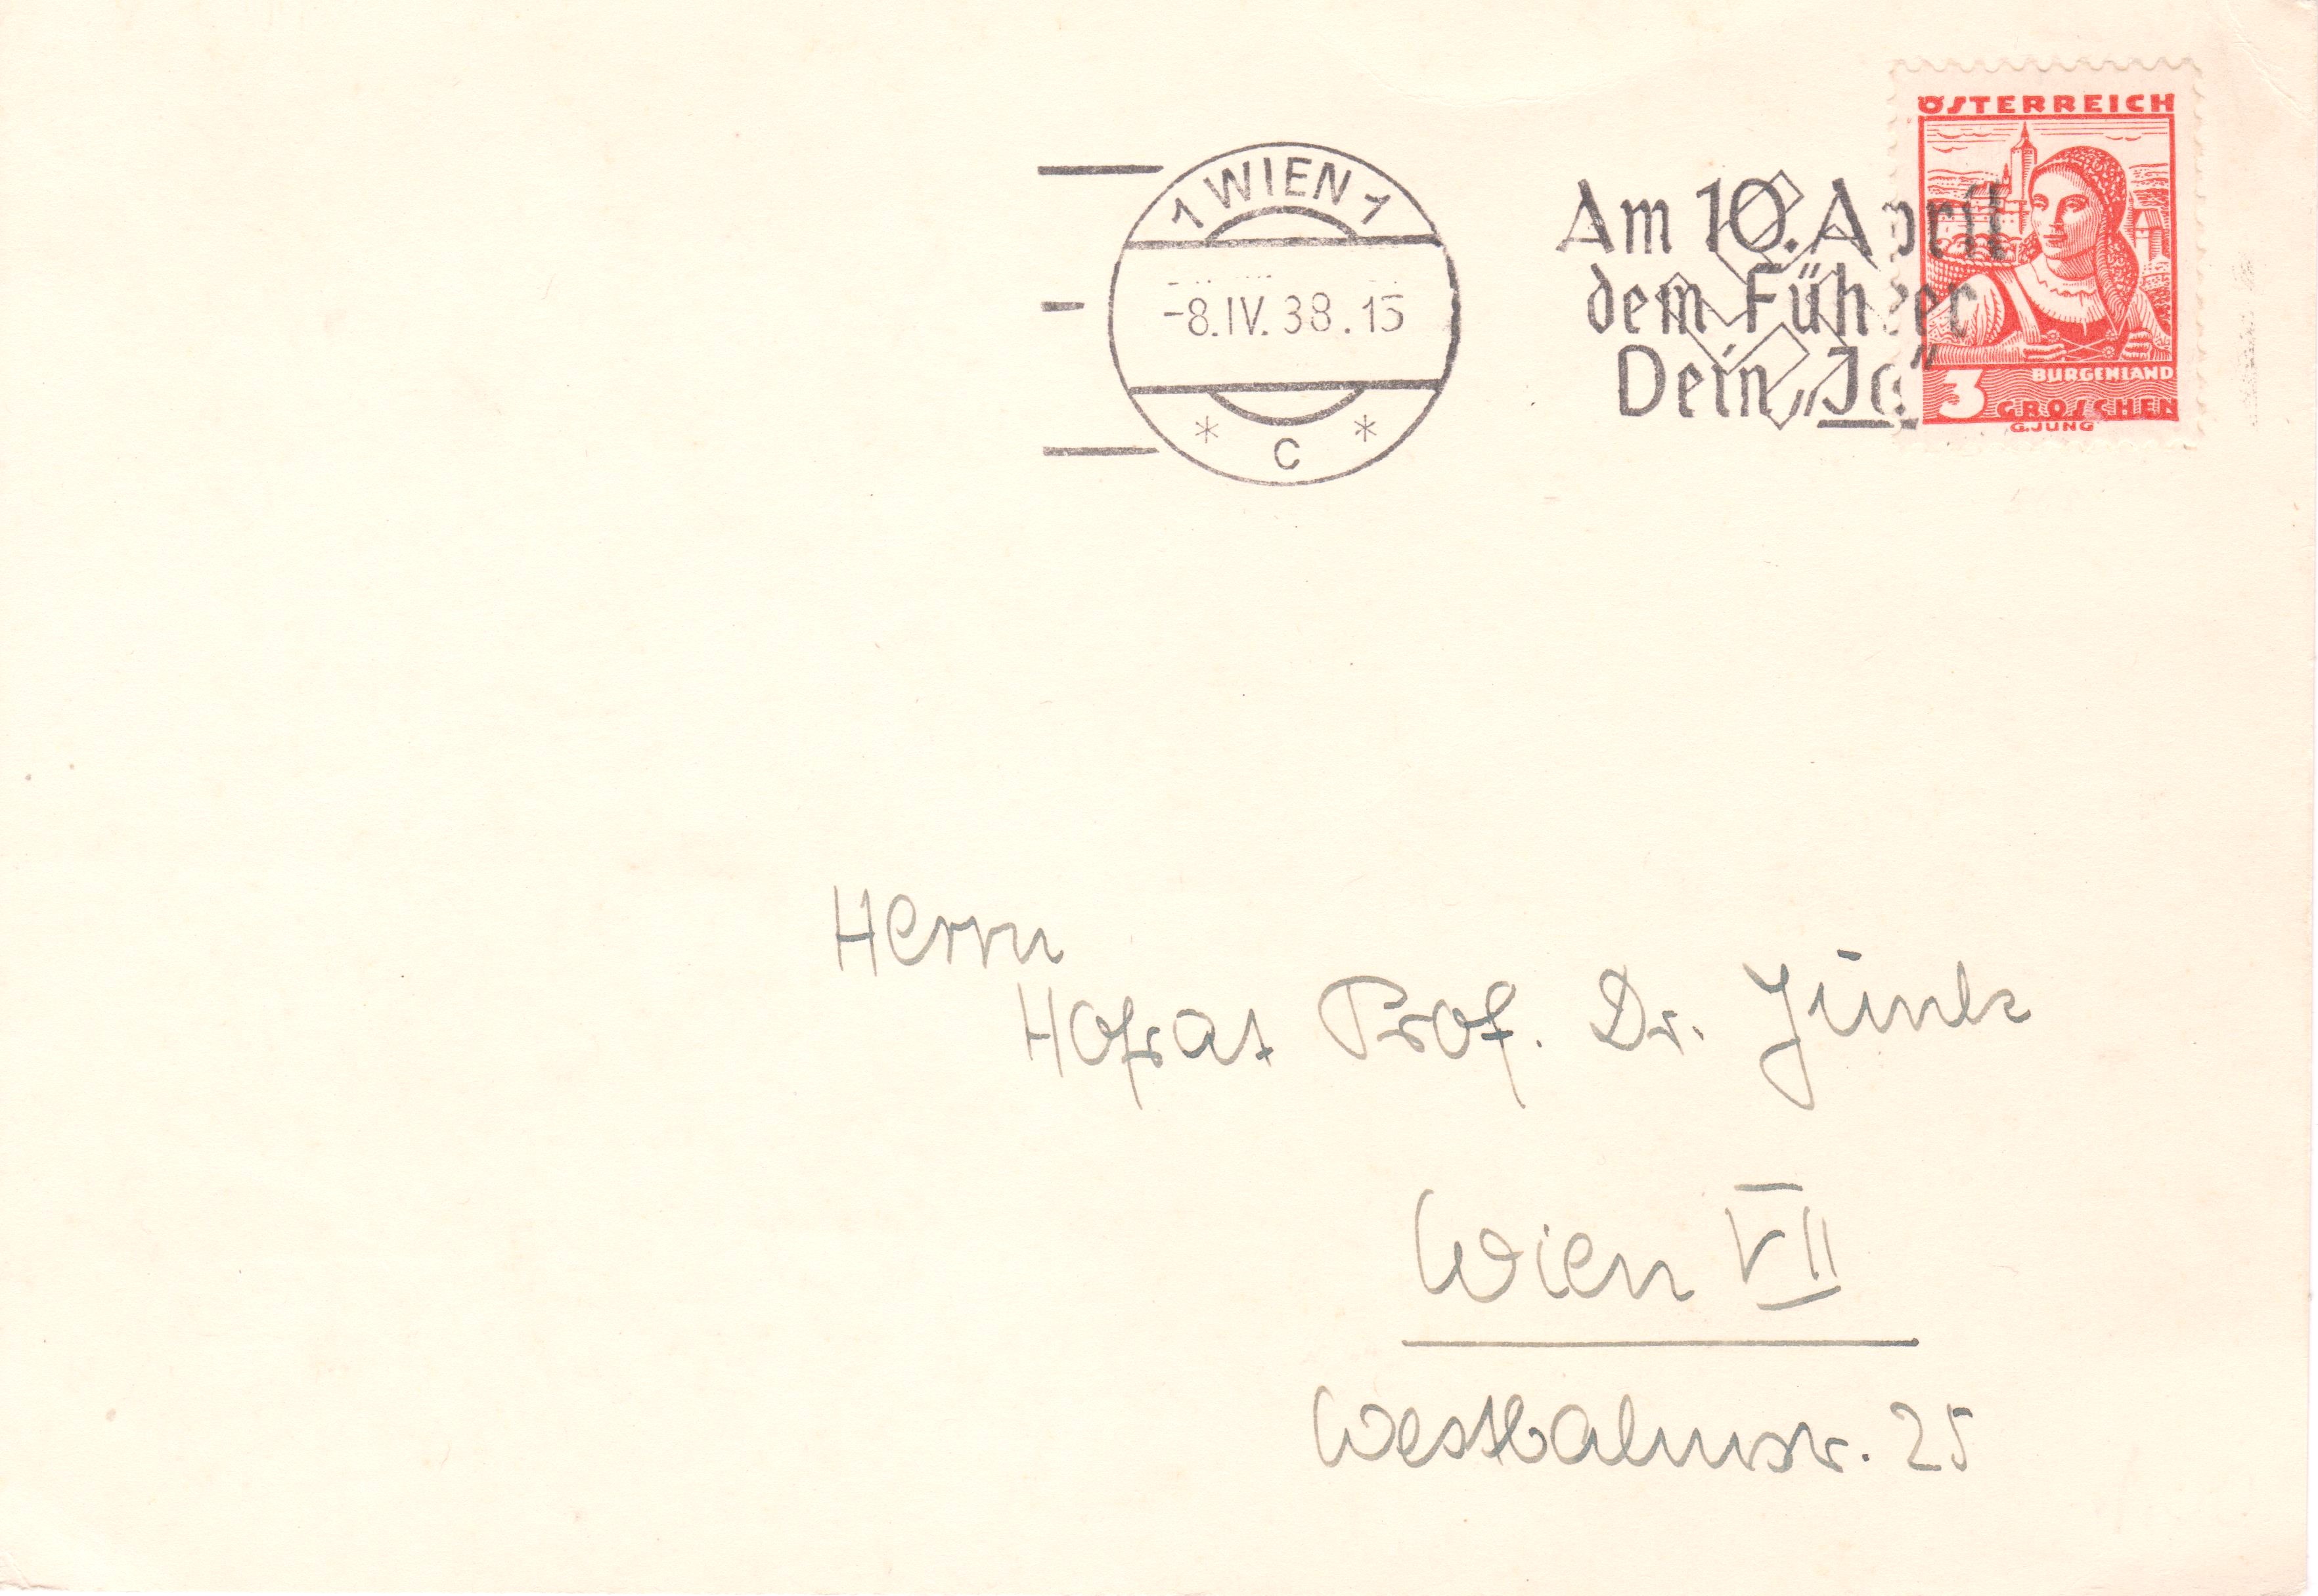 ÖSTERREICH
1 WIEN 1
-8.IV.38.15
* C *
Am 10. April
dem Führer
Dein „Ja“
BURGENLAND
3 GROSCHEN
G.JUNG
Herrn
Hofrat Prof. Dr. Junk
Wien VII
Westbahnstr. 25